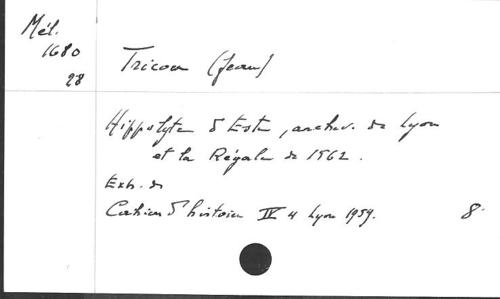 Mél.
1680
28
Tricou (Jean)
Hippolyte d'Este, archev. de Lyon
et la Régale de 1562.
Extr. de
Cahiers d'histoire IV 4 Lyon 1959. 8°